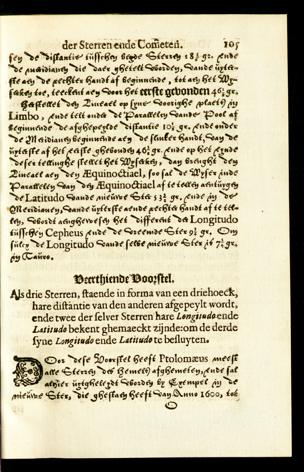 der Sterren ende Cometen. 105
sen de distantie tusschen beyde Sterren 18½ gr. Ende
de meridianen die daer ghetelt worden, vande uyterste
aen de rechter handt af beginnende, tot aen het
teeckent aen voor het eerste gevonden 46½ gr.
Limbo, ende telt onder de Parallelen vande Pool af
beginnende de afghepeylde distantie 10½ gr. ende onder
de Meridianen beginnende aen de slincker handt, van de
uyterste af het eerste ghevonden 46½ gr. ende op het eynde
deser tellinghe stellet het Wyserken, dan brenght den
Zineael aen den Æquinoctiael, soo sal de Wyser inde
Parallelen van den Æquinoctiael af te tellen aenwysen
de Latitudo vande nieuwe Ster 53½ gr. ende in de
Meridianen, vande uyterste aende rechter handt af te
tellen, wordt aenghewesen het different der Longitudo
tusschen Cepheus ende de vreemde Ster 9½ gr.
de Longitudo vande selve nieuwe Ster is 7½ gr.
in Tauro.
Veerthiende Voorstel.
Als drie Sterren, staende in forma van een driehoeck,
hare distantie van den anderen afgepeylt wordt,
ende twee der selver Sterren hare Longitudo ende
Latitudo bekent ghemaeckt zijnde: om de derde
syne Longitudo ende Latitudo te besluyten.
Door dese Voorstel heeft Ptolomæus meest
alle Sterren des Hemels afghemeten, ende sal
alhier uytgheleydt worden by Exempel in de
nieuwe Ster, die ghestaen heeft Anno 1600, tot
O